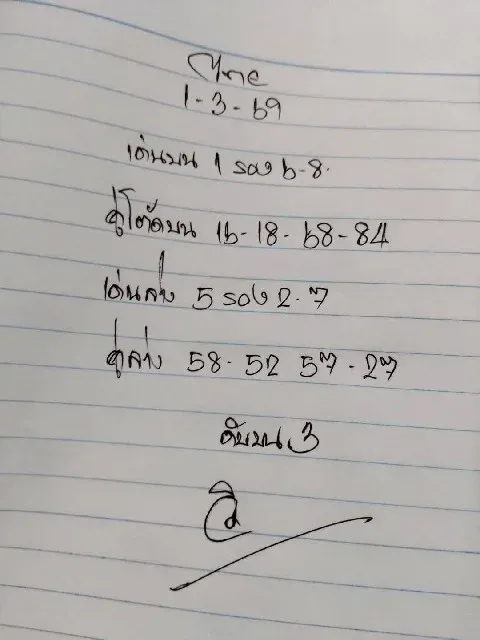 ไทย
1-3-69
เด่นบน 1 รอง 6-8.
คู่โต๊ดบน 16-18-68-84
เด่นล่าง 5 รอง 2.7
คู่ล่าง 58-52 57-27
ดับบน 3